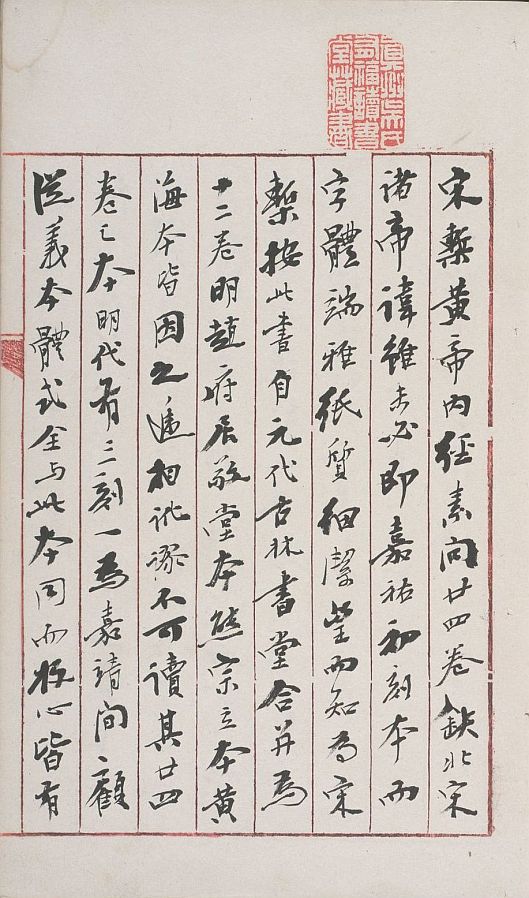 真州吳氏
有福讀書
堂藏書
宋槧黃帝內經素問廿四卷缺北宋
諸帝諱雖未必即嘉祐初刻本而
字體端雅紙質細潔望而知為宋
槧按此書自元代古林書堂合并為
十二卷明趙府居敬堂本熊宗立本黃
海本皆因之遞相訛謬不可讀其廿四
卷之本明代有三刻一為嘉靖間顧
從義本體式全與此本同而板心皆有